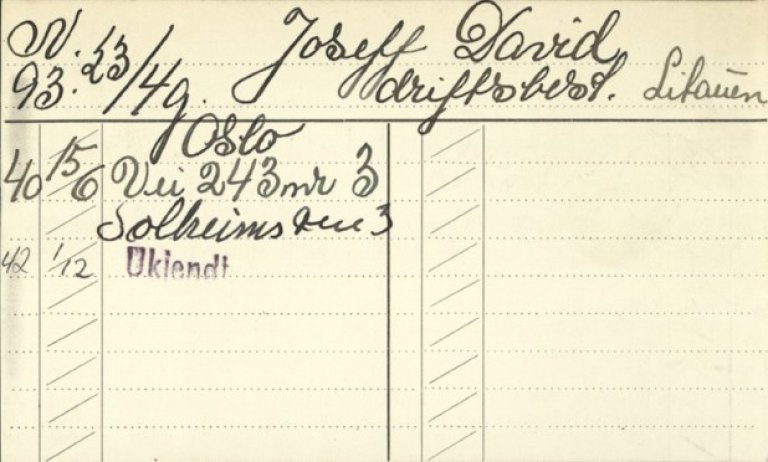 N. 23/ Joseff David
93. /4g. driftsbest. Litauen
Oslo
40 15/6 Vei 243 nr 3
Solheimsveien 3
42 1/12 Ukjendt